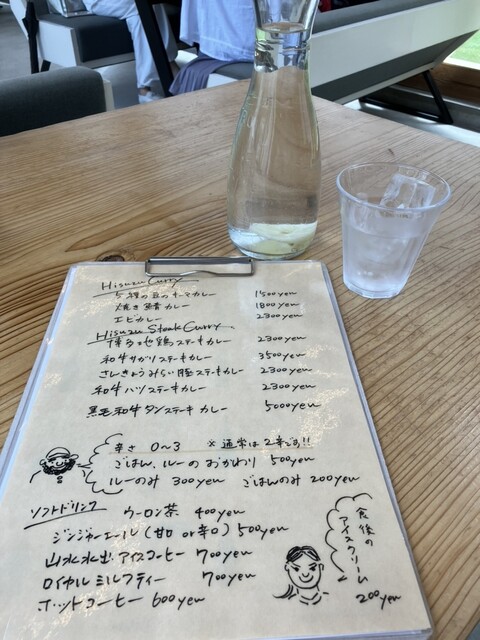 Hisuzu Curry
5種の豆のキーマカレー 1500yen
焼き鯖カレー 1800yen
エビカレー 2300yen
Hisuzu Steak Curry
博多地鶏ステーキカレー 2300yen
和牛サガリステーキカレー 3500yen
さんきょうみらい豚ステーキカレー 2300yen
和牛ハツステーキカレー 2300yen
黒毛和牛タンステーキカレー 5000yen
辛さ 0~3 ※通常は2辛です!!
ごはん、ルーのおかわり 500yen
ルーのみ 300yen ごはんのみ 200yen
ソフトドリンク ウーロン茶 400yen
ジンジャーエール(甘口 or 辛口) 500yen
山水水出アイスコーヒー 700yen
ロイヤルミルクティー 700yen
ホットコーヒー 600yen
食後の
アイスクリーム
200yen